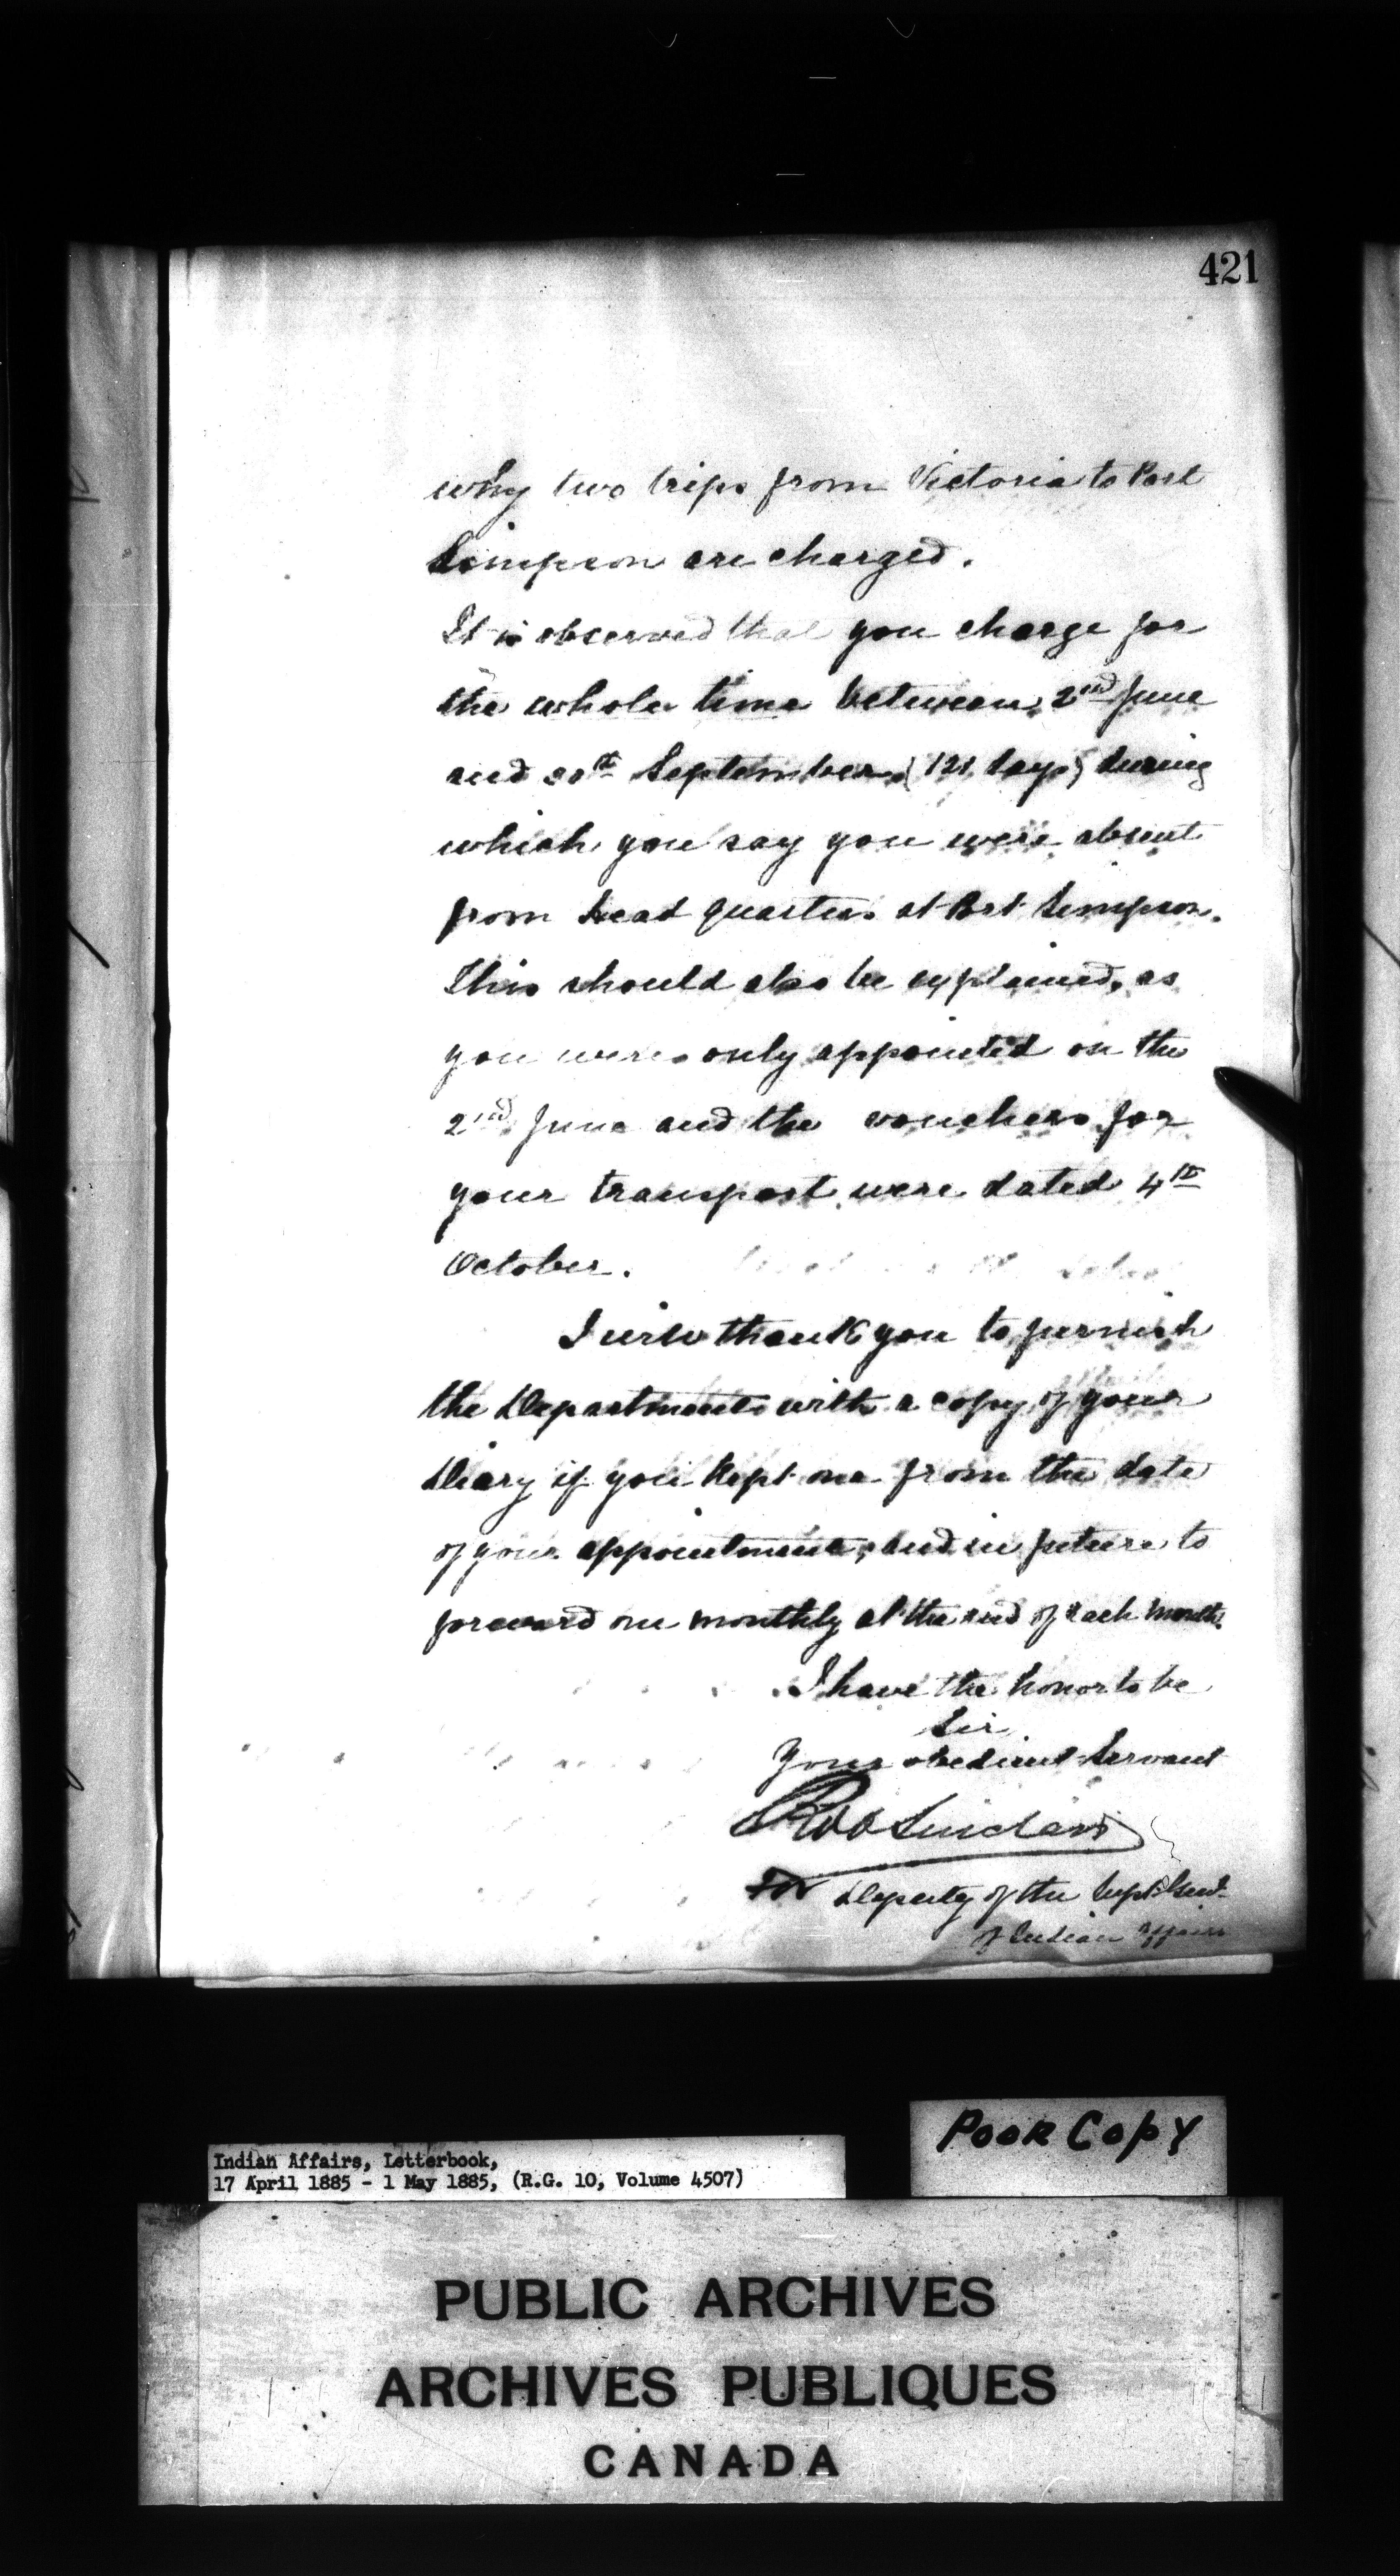 421
why two trips from Victoria to Port
Simpson are charged.
It is observed that you charge for
the whole time between 2nd June
and 30th September (121 days) during
which you say you were absent
from Head quarters at Port Simpson.
This should also be explained, as
you were only appointed on the
2nd June and the vouchers for
your transport were dated 4th
October.
I will thank you to furnish
the Department with a copy of your
Diary if you kept one from the date
of your appointment, and in future to
forward one monthly at the end of each month.
I have the honor to be
Sir
Your obedient Servant
Sinclair
For Deputy of the Supt Genl
of Indian Affairs
POOR COPY
Indian Affairs, Letterbook,
17 April 1885 - 1 May 1885, (R.G. 10, Volume 4507)
PUBLIC ARCHIVES
ARCHIVES PUBLIQUES
CANADA